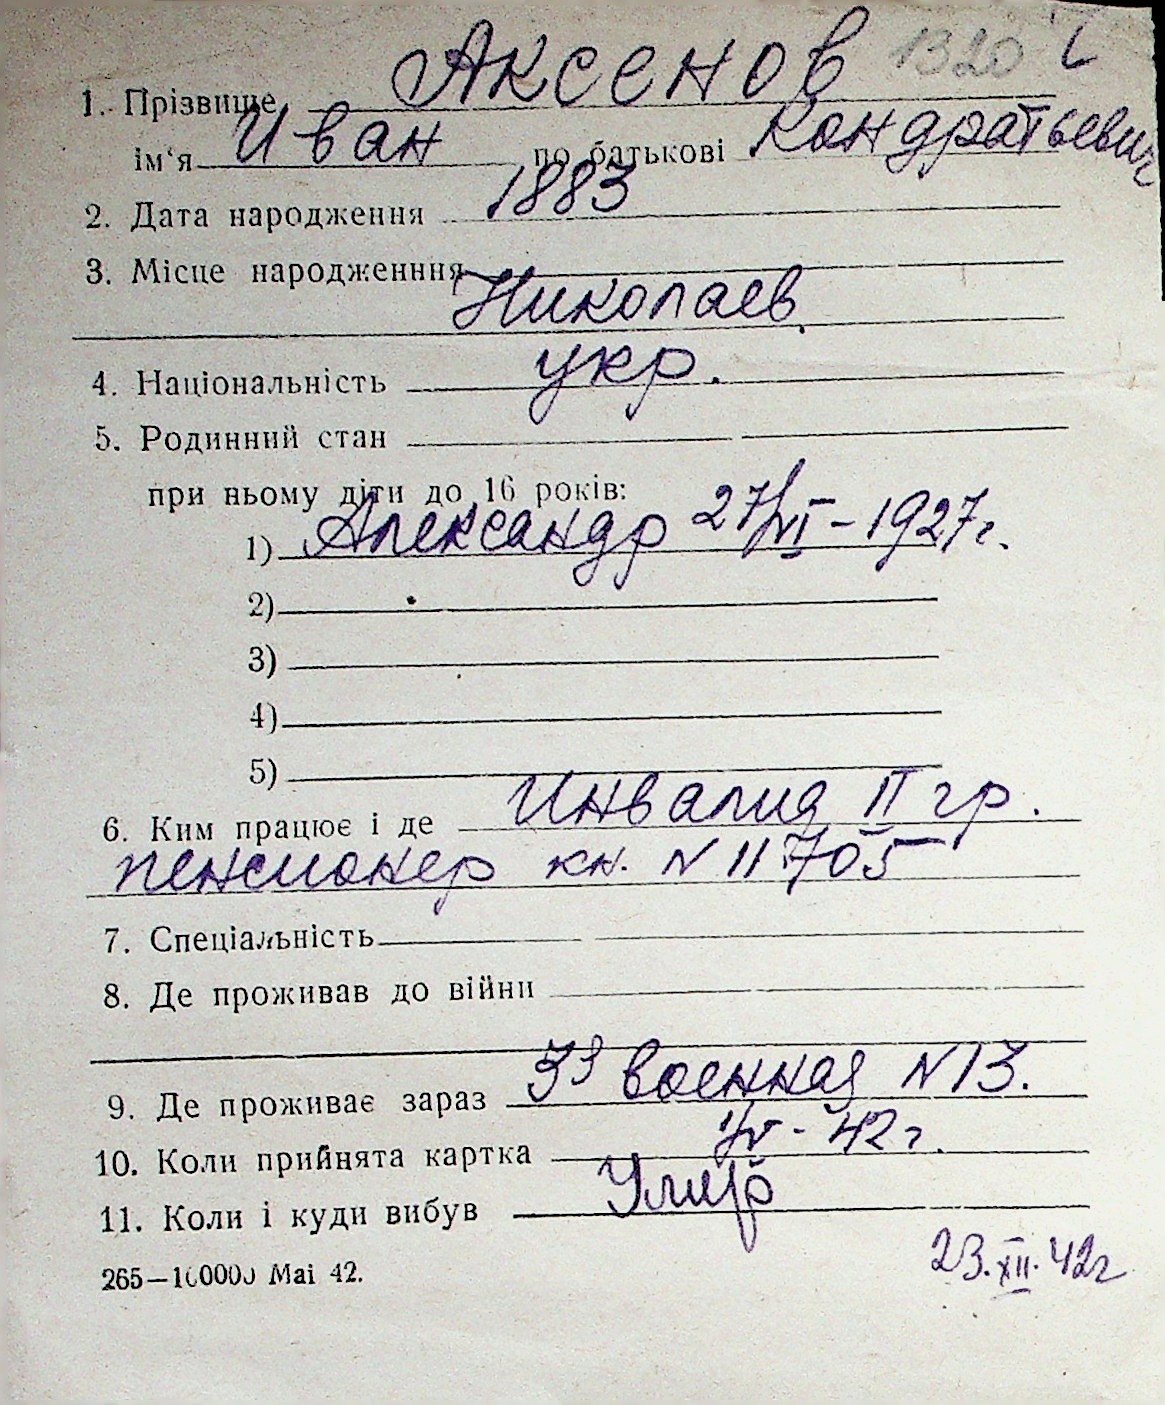 1. Прізвище Аксенов 1320
ім‘я Иван по батькові Кондратьевич
2. Дата народження 1883
3. Місце народженння
Николаев.
4. Національність укр.
5. Родинний стан
при ньому діти до 16 років:
1) Александр 27/VI – 1927г.
2)
3)
4)
5)
6. Ким працює і де Инвалид II гр.
пенсионер кн. N 11705
7. Спеціальність
8. Де проживав до війни
9. Де проживає зараз 3я военная N 13.
10. Коли прийнята картка 1/V - 42 г.
11. Коли і куди вибув
23.XII.42г
265—100000 Mai 42.